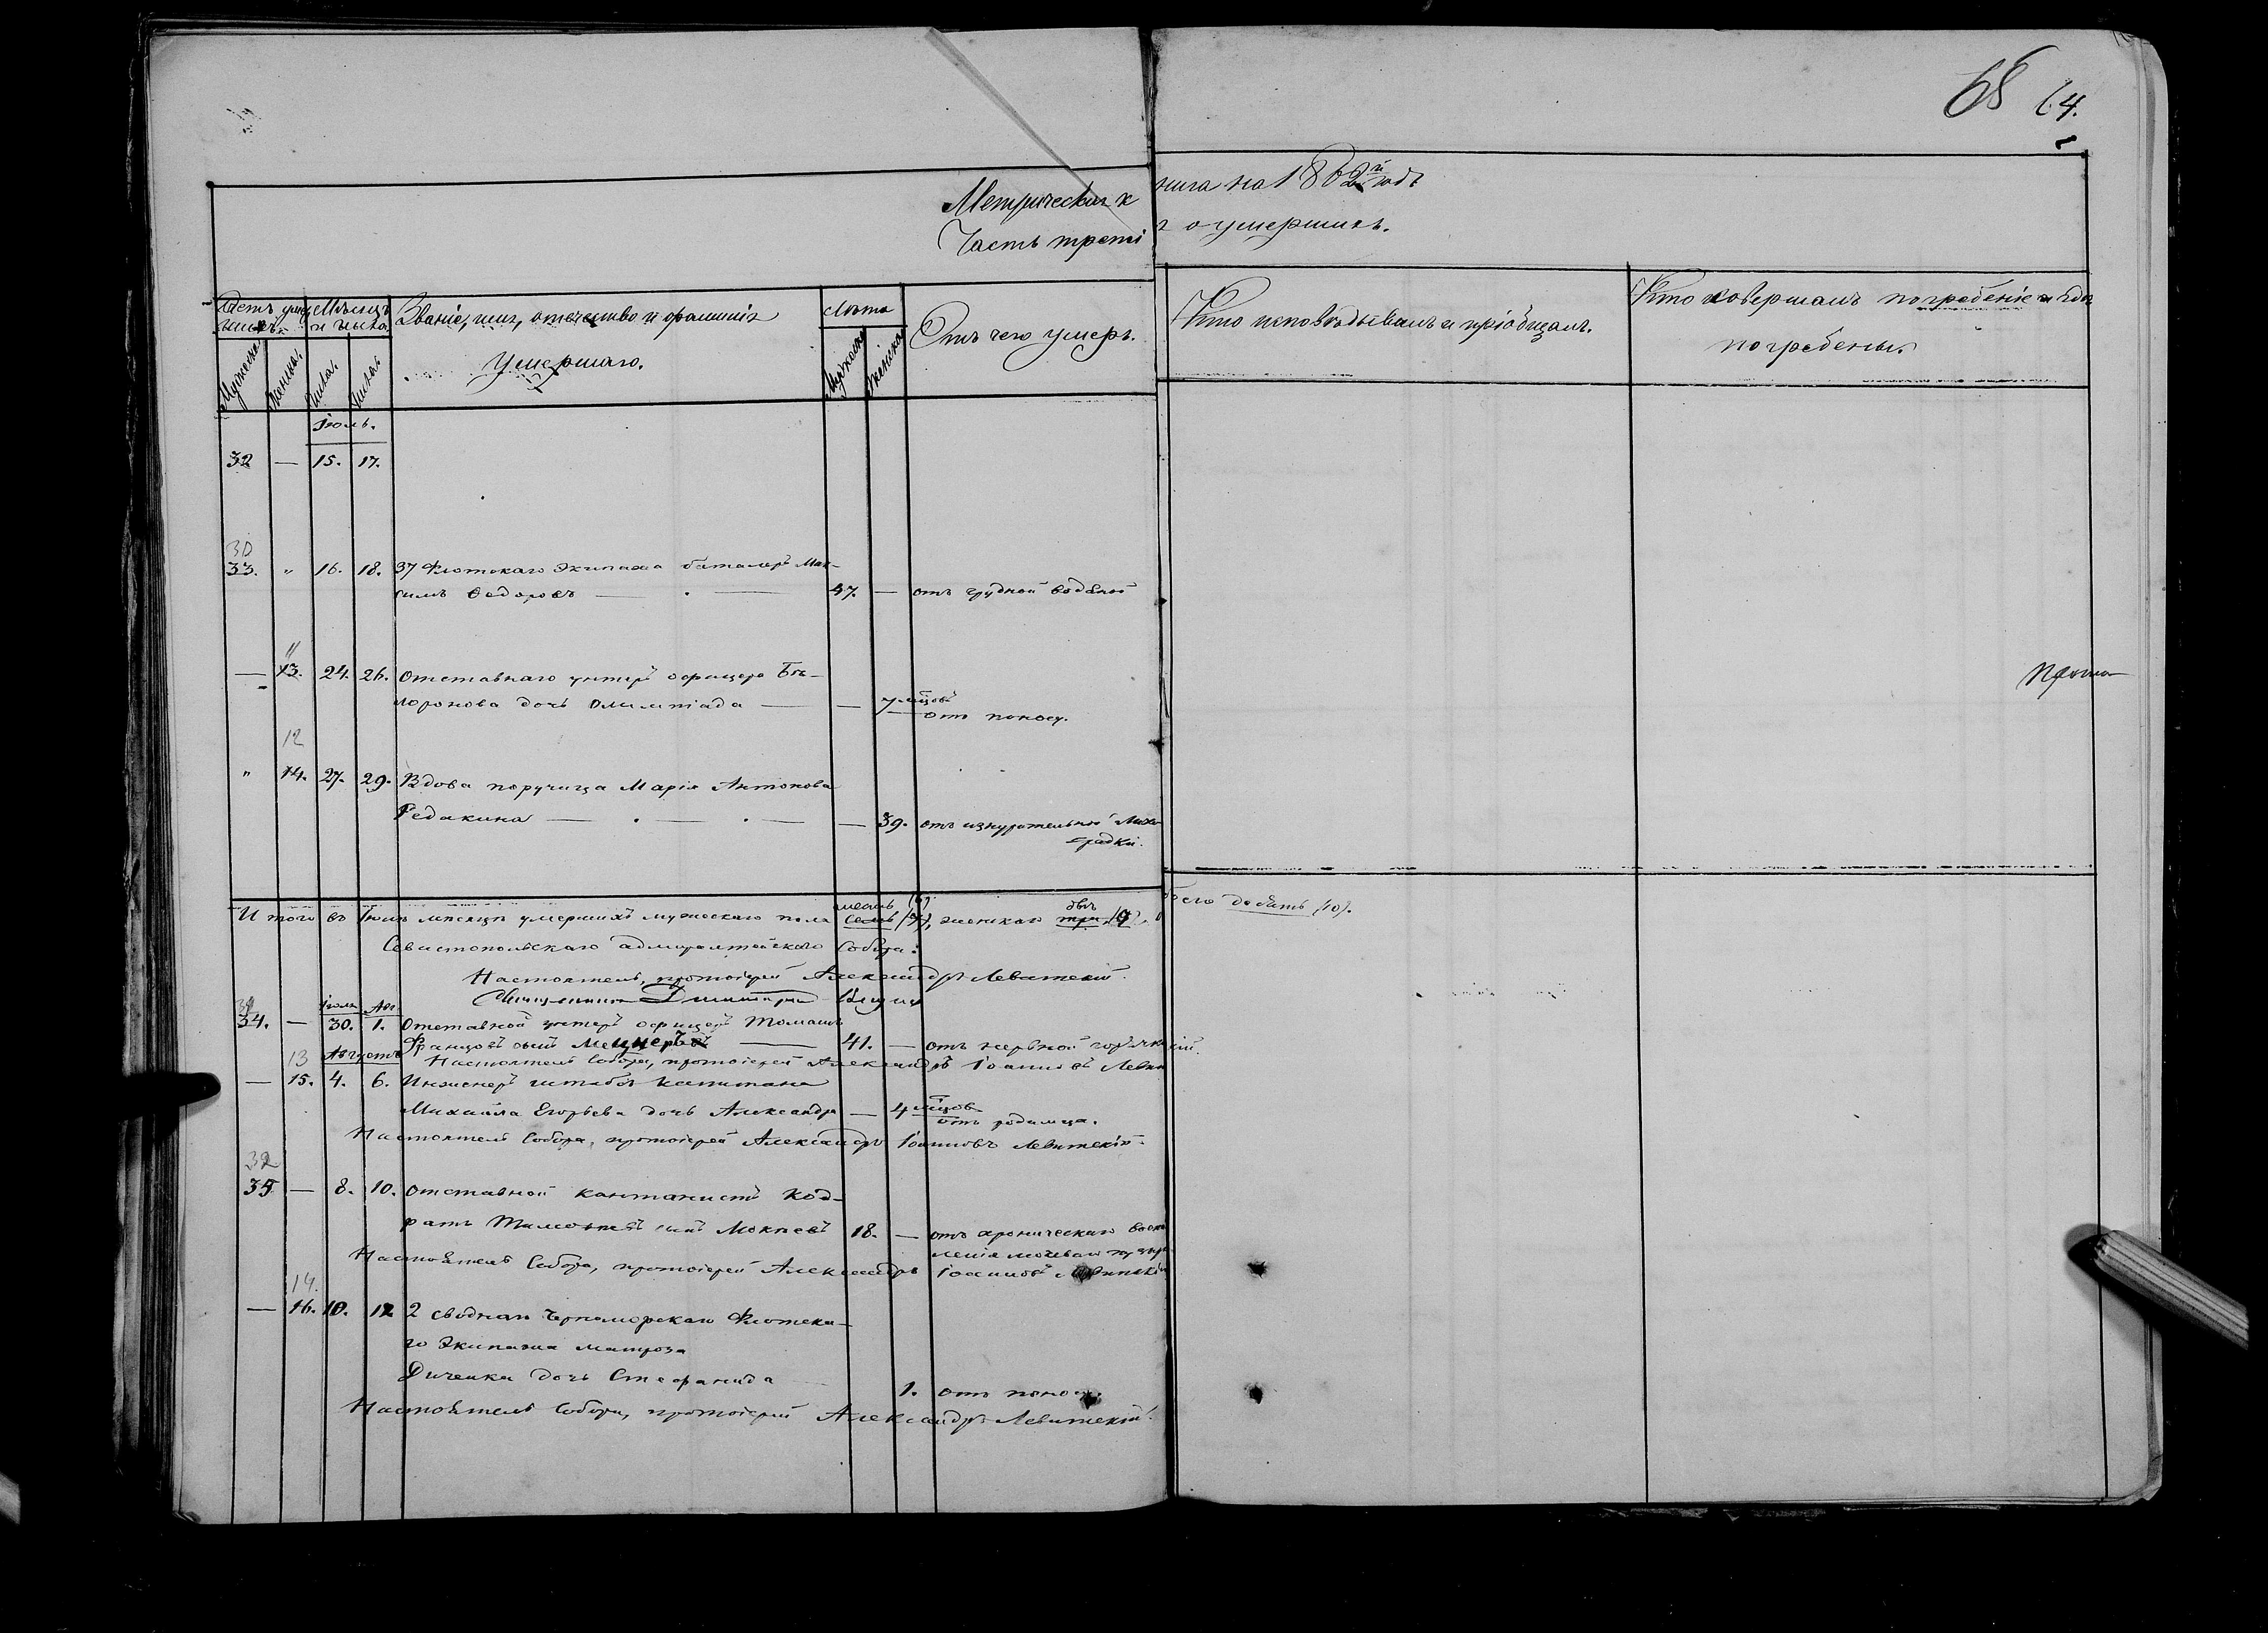 68 64.
Метрическая книга на 1862й годъ
Часть третія о умершихъ.
Счетъ умершихъ.
Мѣсяцъ и число
Званіе, имя, отчество и фамилія
умершаго.
Лѣта
Отъ чего умеръ.
Кто исповѣдывалъ и пріобщалъ.
Кто совершалъ погребеніе и гдѣ
погребены.
Мужеска. Женска. числа. числа. Мужеска Женска
Іюль.
32 — 15. 17.
30
33. " 16. 18. 37 Флотскаго Экипажа баталеръ Мак-
симъ Ѳедоровъ — 47. — отъ грудной водяной
11
— 13. 24. 26. Отставнаго унтеръ офицера Бѣ-
лоронова дочь Олимпіада — — 7 мѣсяцовъ
отъ поносу.
12
" 14. 27. 29. Вдова поручица Марія Антонова
Редакина — — 39. отъ изнурительной Лихо-
радки.
шесть (6) двѣ
Итого въ Іюлѣ мѣсяцѣ умершихъ мужескаго пола семь (7), женскаго три обоего десять (10).
Севастопольскаго адмиралтейскаго Собора:
Настоятель, протоіерей Александръ Левитскій.
31 Іюля Авг.
34. — 30. 1. Отставной унтеръ офицеръ Томашъ
Францовъ сынъ Мецнеръ — 41. — отъ нервной горячки
13 Августъ
Настоятель Собора, протоіерей Александръ Іоанновъ Левитскій.
— 15. 4. 6. Инженеръ штабсъ капитана
Михаила Егорьева дочь Александра — 4 мѣсяцовъ
отъ родимца.
Настоятель Собора, протоіерей Александръ Іоанновъ Левитскій.
32
35 — 8. 10. Отставной кантонистъ Код-
ратъ Тимофеевъ сынъ Мокѣевъ 18. — отъ хроническаго воспа
ленія мочеваго пузыря
Настоятель Собора, протоіерей Александръ Іоанновъ Левитскій
14.
— 16. 10. 12 2 сводного Черноморскаго Флотска-
го Экипажа матроза
Дыченка дочь Стефанида 1. отъ поноса.
Настоятель Собора, протоіерей Александръ Левитскій.